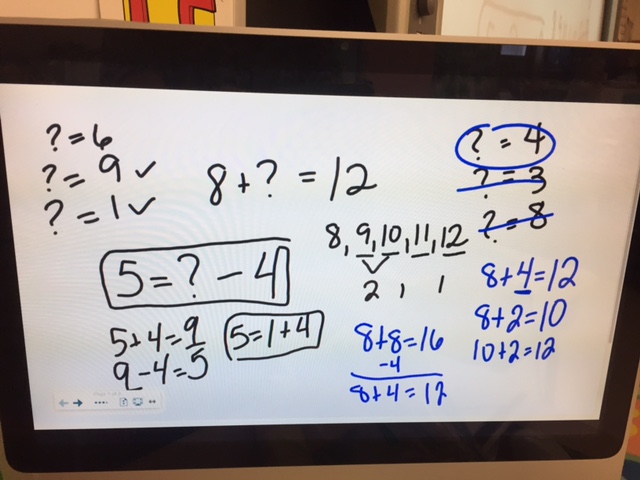 ? = 6
? = 9 ✓
? = 1 ✓
8 + ? = 12
? = 4
? = 3
? = 8
8, 9, 10, 11, 12
2 1 1
5 = ? - 4
5+4=9
9-4=5
5=1+4
8+8=16
-4
8+4=12
8+4=12
8+2=10
10+2=12